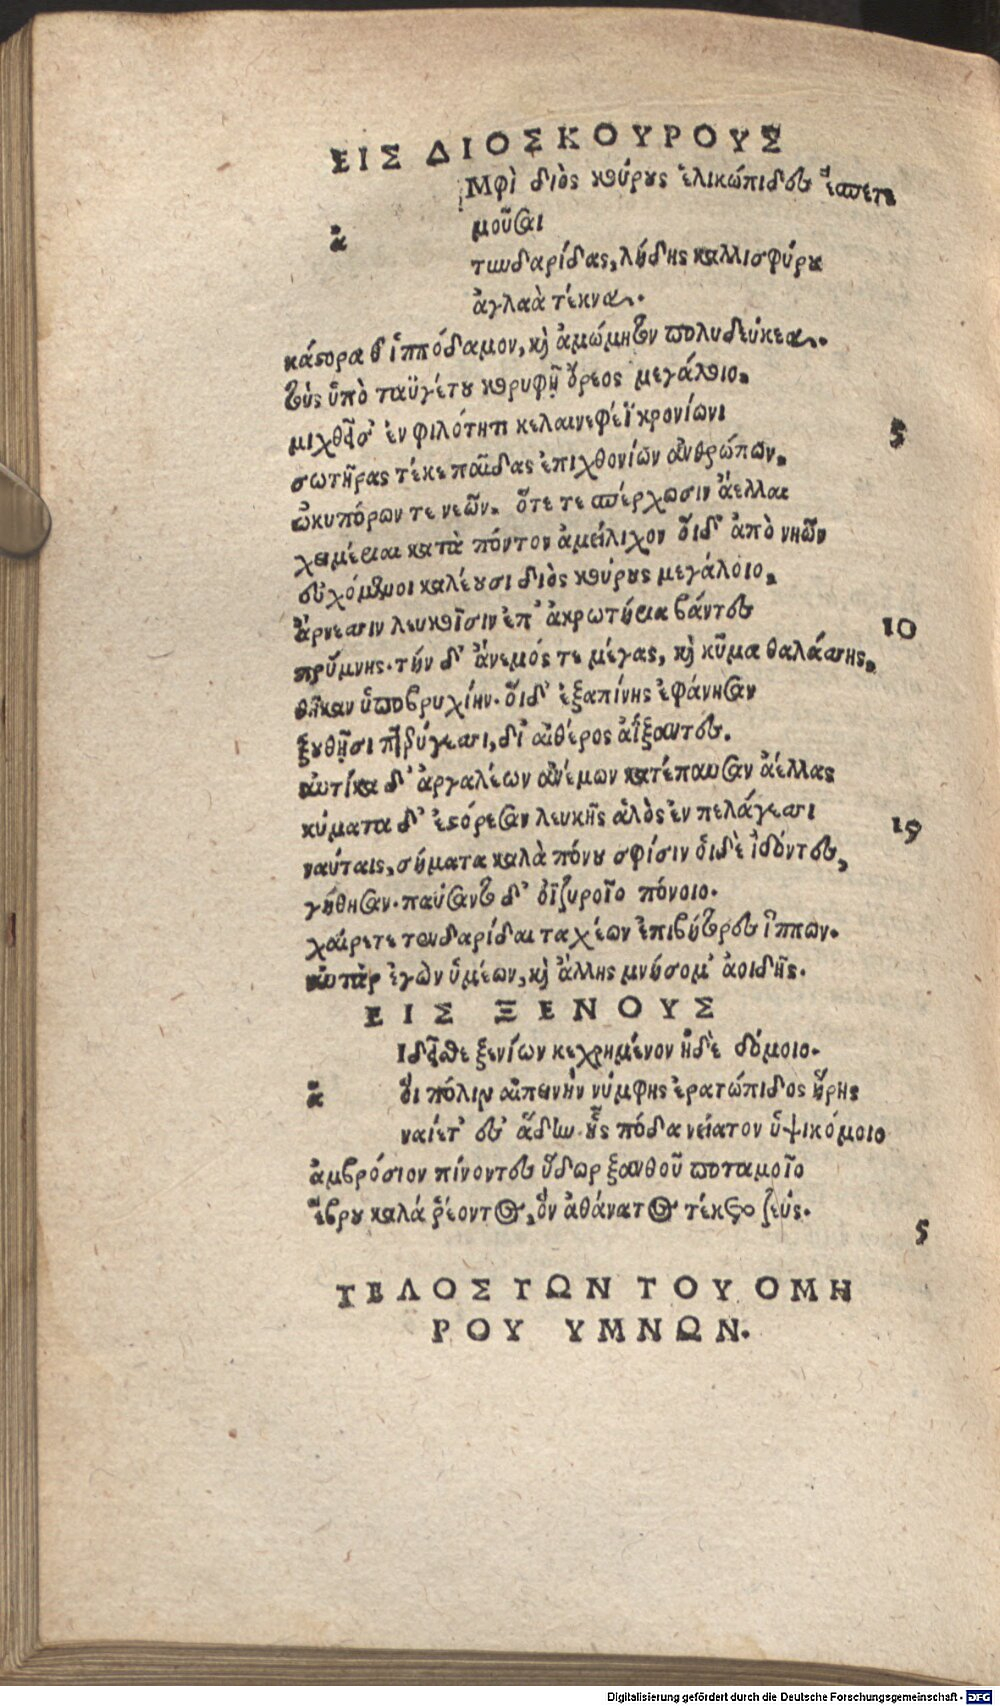 ΕΙΣ ΔΙΟΣΚΟΥΡΟΥΣ
Μφὶ διὸς κούρους ἑλικώπιδες ἔσπετε
ἀ
μοῦσαι
τυνδαρίδας, λήδης καλλισφύρου
ἀγλαὰ τέκνα.
κάστορα θ' ἱππόδαμον, καὶ ἀμώμητον πολυδεύκεα.
τοὺς ὑπὸ ταϋγέτου κορυφῇ ὄρεος μεγάλοιο.
μιχθεῖσ' ἐν φιλότητι κελαινεφέϊ κρονίωνι
5
σωτῆρας τέκε παῖδας ἐπιχθονίων ἀνθρώπων.
ὠκυπόρων τε νεῶν. ὅτε τε σπέρχωσιν ἄελλαι
χειμέριαι κατὰ πόντον ἀμείλιχον οἵδ' ἀπὸ νηῶν
εὐχόμενοι καλέουσι διὸς κούρους μεγάλοιο.
ἄρνεσσιν λευκοῖσιν ἐπ' ἀκρωτήρια βάντες
10
πρύμνης. τήν δ' ἄνεμός τε μέγας, καὶ κῦμα θαλάσσης,
θῆκαν ὑποβρυχίην. οἵδ' ἐξαπίνης ἐφάνησαν
ξουθῇσι πτερύγεσσι, δι' αἰθέρος ἀΐξαντες.
αὐτίκα δ' ἀργαλέων ἀνέμων κατέπαυσαν ἀέλλας
κύματα δ' ἐστόρεσαν λευκῆς ἁλὸς ἐν πελάγεσσι
15
ναύταις, σήματα καλὰ πόνου σφίσιν οἱ δὲ ἰδόντες,
γήθησαν. παύσαντο δ' ὀϊζυροῖο πόνοιο.
χαίρετε τυνδαρίδαι ταχέων ἐπιβήτορες ἵππων.
αὐτὰρ ἐγὼν ὑμέων, καὶ ἄλλης μνήσομ' ἀοιδῆς.
ΕΙΣ ΞΕΝΟΥΣ
Ιδεῖσθε ξενίων κεχρημένον ἠδὲ δόμοιο.
ἀ
οἳ πόλιν αἰπεινὴν νύμφης ἐρατώπιδος ἥρης
ναίετ' ἐς ἅδην. ἧς πόδα νείατον ὑψικόμοιο
ἀμβρόσιον πίνοντες ὕδωρ ξανθοῦ ποταμοῖο
ἕβρου καλά ῥέοντος, ὃν ἀθάνατος τέκετο ζεύς.
5
ΤΕΛΟΣ ΤΩΝ ΤΟΥ ΟΜΗ
ΡΟΥ ΥΜΝΩΝ.
Digitalisierung gefördert durch die Deutsche Forschungsgemeinschaft - DFG